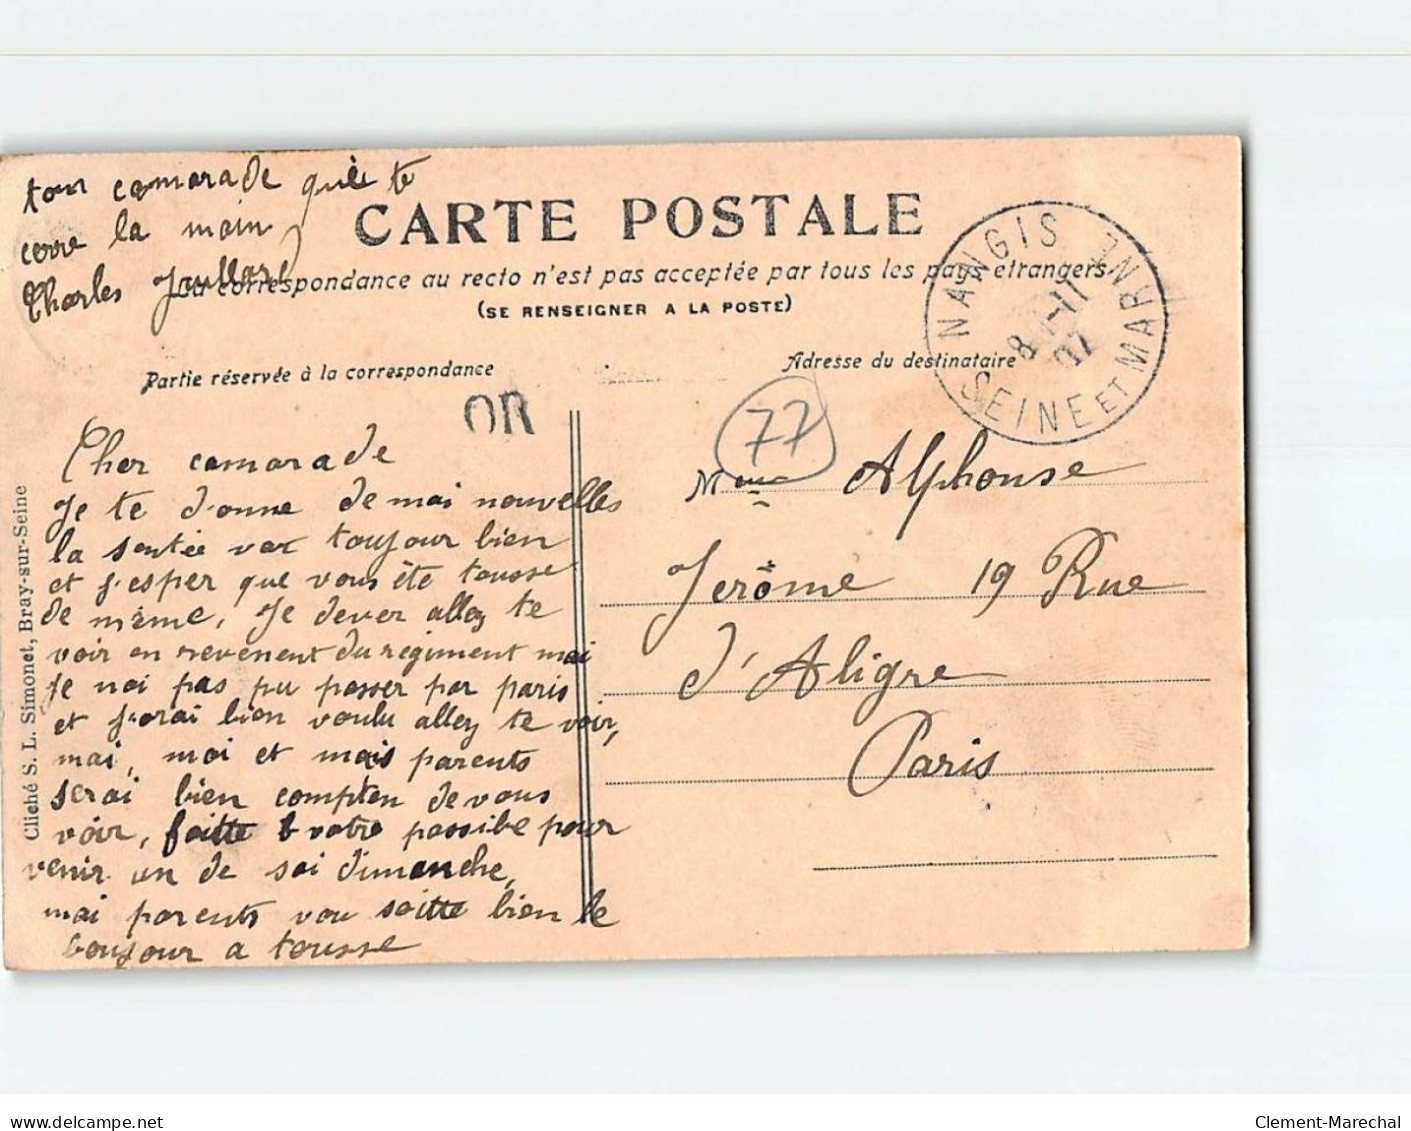 ton camarade quiè te
cerre la main
Charles
CARTE POSTALE
La correspondance au recto n'est pas acceptée par tous les pays étrangers
(SE RENSEIGNER A LA POSTE)
NANGIS
SEINE ET MARNE
8
-11
07
Partie réservée à la correspondance
Adresse du destinataire
OR
77
Cher camarade
Je te donne de mai nouvelles
la sentée vax toujour bien
et j'esper que vous éte tousse
de même, Je dever allez te
voir en revenent du régiment mai
Je nai pas pu passer par paris
et j'orai bien voulu allez te voir,
mai, moi et mais parents
serai bien compten de vous
voir, faitte votre possibe pour
venir un de sai dimanche,
mai parents vou soitte bien le
boujour a tousse
Mme Alphonse
Jerôme 19 Rue
d'Aligre
Paris
Cliché S. L. Simonet, Bray-sur-Seine
www.delcampe.net
Clement-Marechal